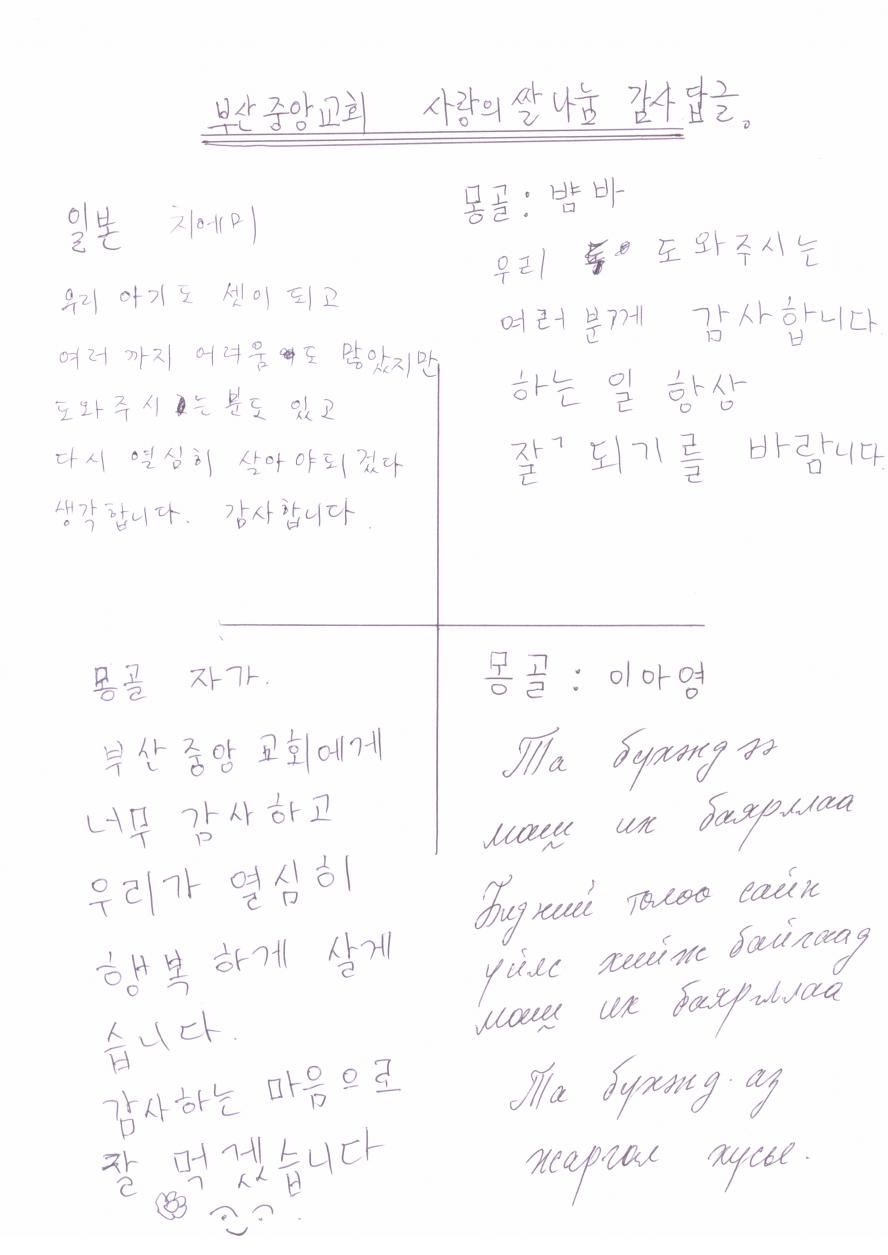 부산중앙교회 사랑의 쌀 나눔 감사 답글.
일본 치에미
우리 아기도 셋이 되고
여러 까지 어려움도 많았지만
도와주시는 분도 있고
다시 열심히 살아야되겠다
생각합니다. 감사합니다.
몽골: 뱜바
우리 도와주시는
여러분께 감사합니다.
하는 일 항상
잘 되기를 바람니다.
몽골 자가.
부산중앙교회에게
너무 감사하고
우리가 열심히
행복하게 살게
습니다.
감사하는 마음으로
잘 먹겠습니다
몽골: 이아영
Та бүхэндээ
маш их баярллаа
Бидний төлөө сайн
үйлс хийж байгаад
маш их баярллаа
Та бүхэнд аз
жаргал хүсье.